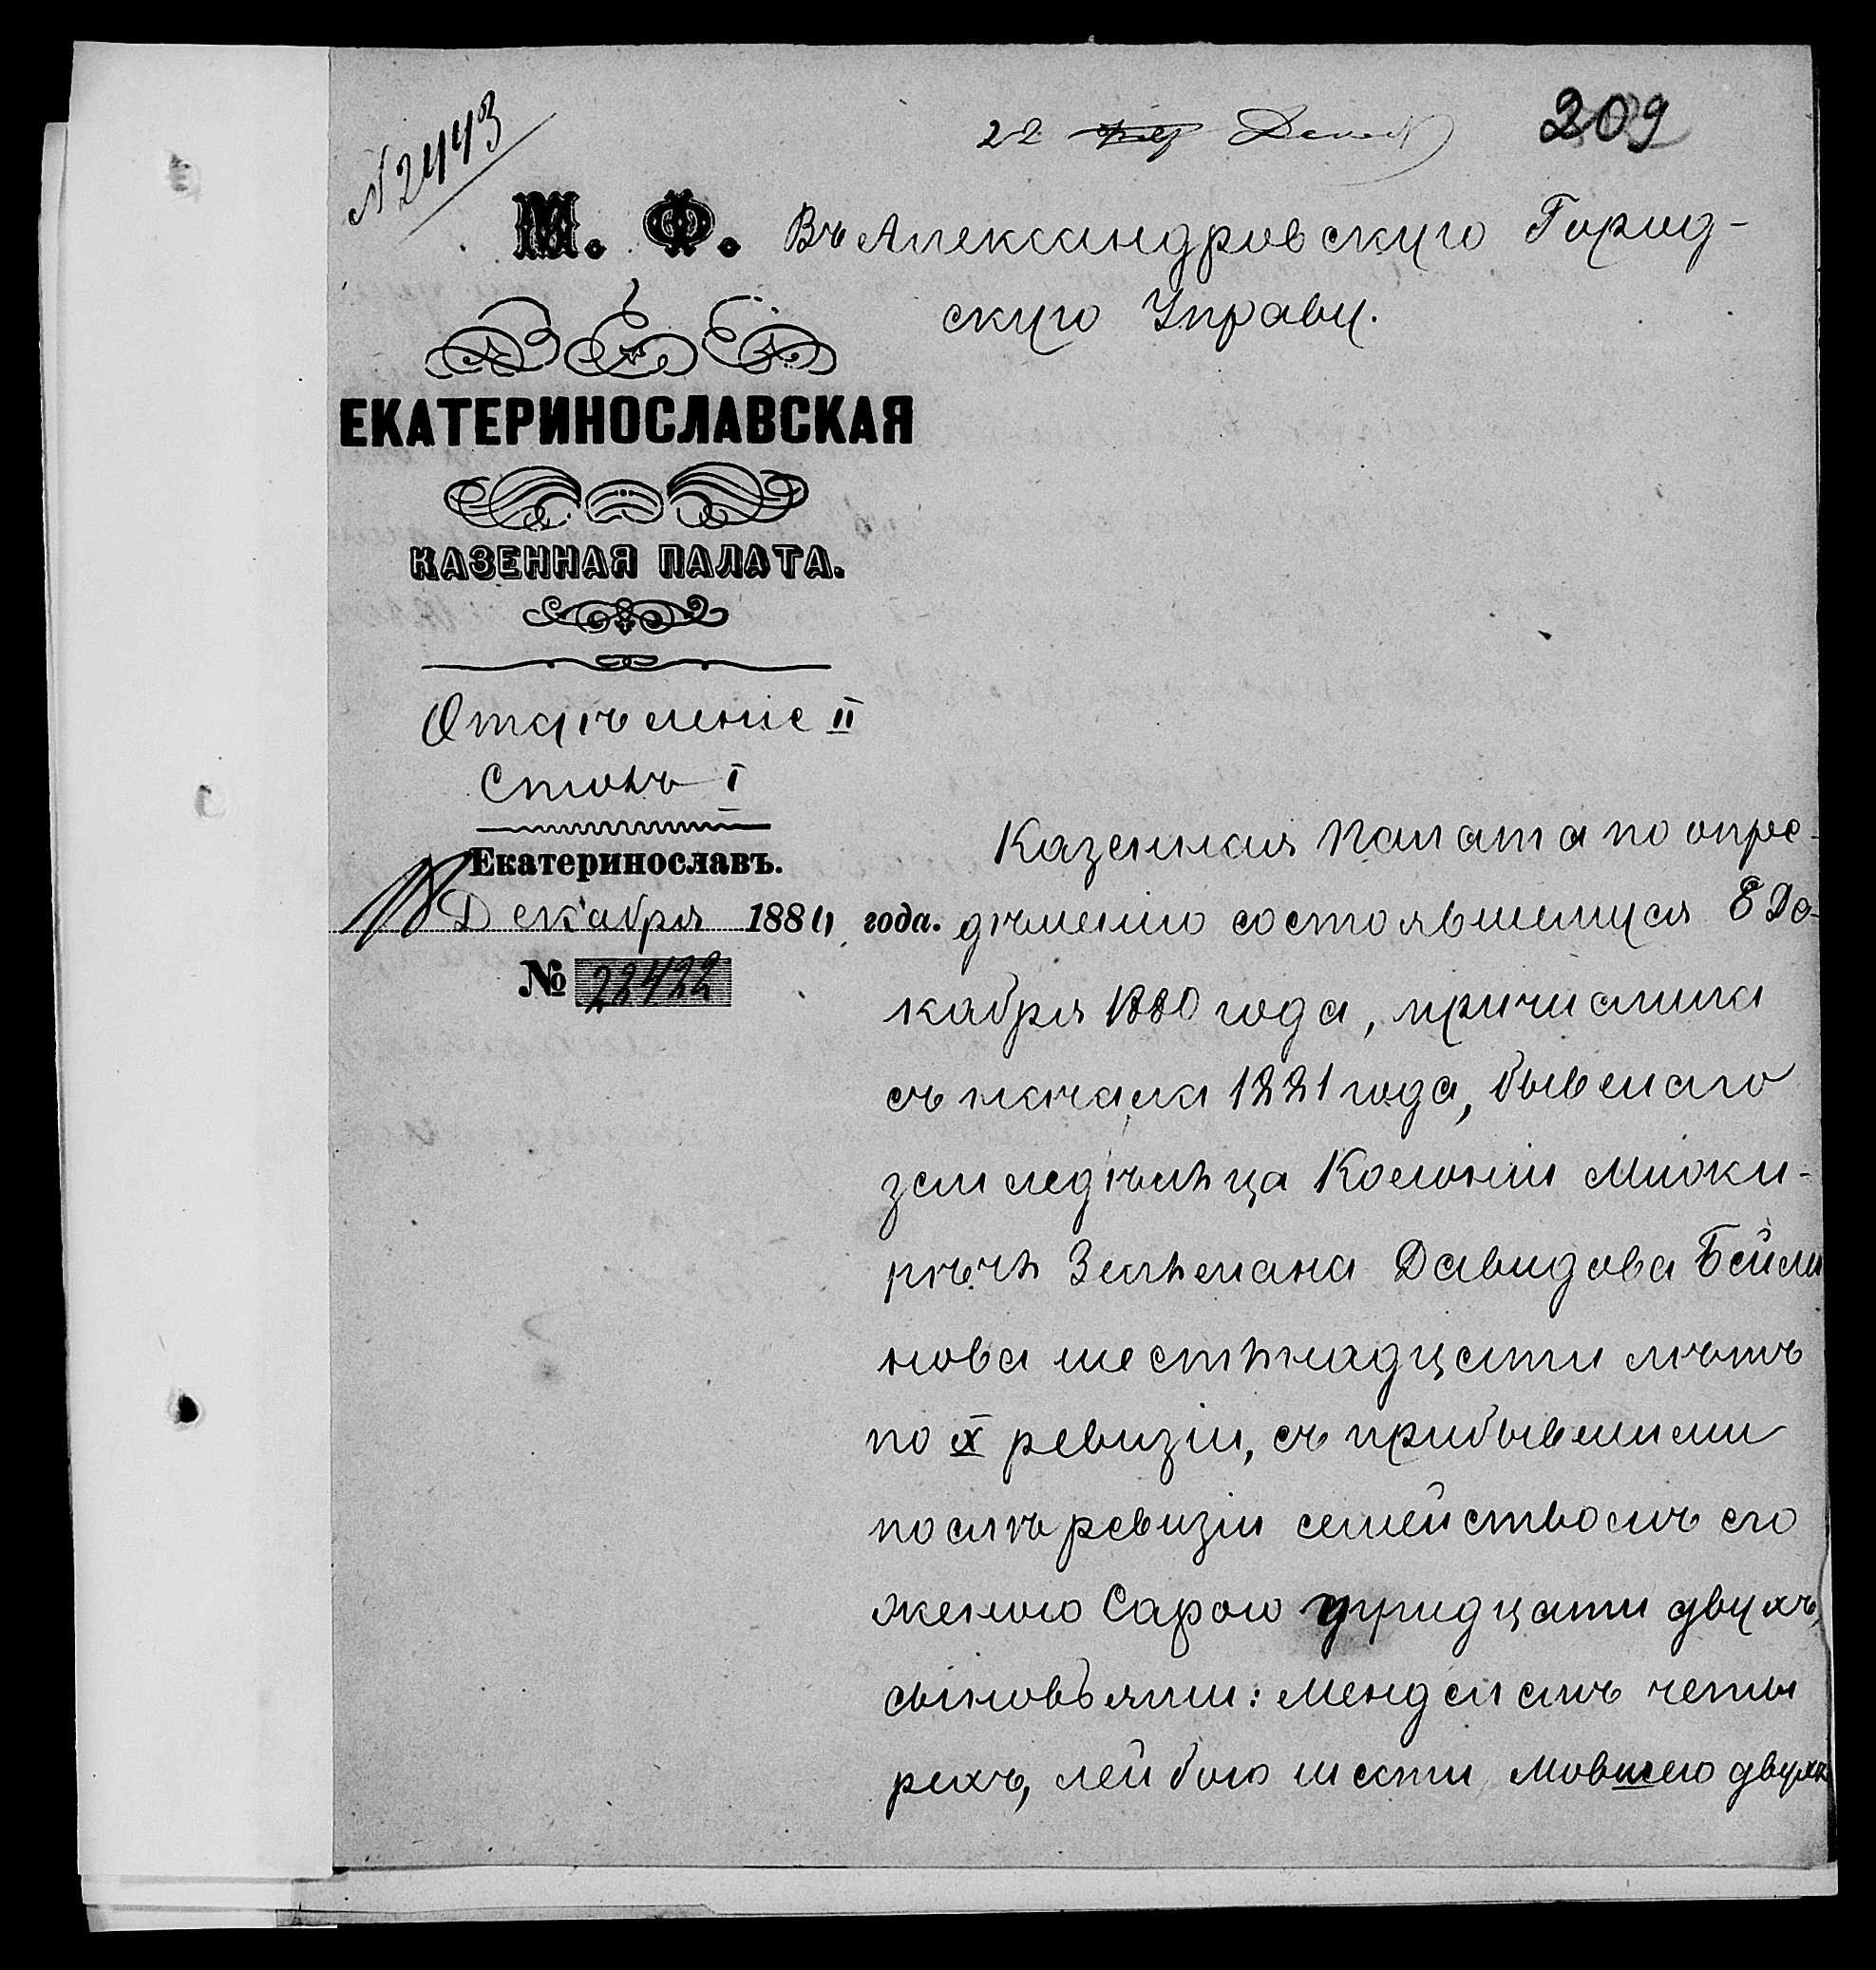 N 2443
22 Декаб
209
М. Ф.
Въ Александровскую Город-
скую Управу.
ЕКАТЕРИНОСЛАВСКАЯ
КАЗЕННАЯ ПАЛАТА.
Отдѣленіе II
Столъ I
Екатеринославъ.
Декабря 188 года.
№ 22422
Казенная Палата по опре-
дѣленію состоявшемуся 8 Де-
кабря 1880 года, причислила
съ начала 1881 года, бывшаго
земледѣльца Колоніи
Зельмана Давидова Бейли
нова шестьнадцати лѣтъ
по X ревизіи, съ прибывшими
послѣ ревизіи семействомъ его
женою Сарою тридцати двухъ,
сыновьями: Менделемъ четы
рехъ, Лейбою шести Мовшею двухъ